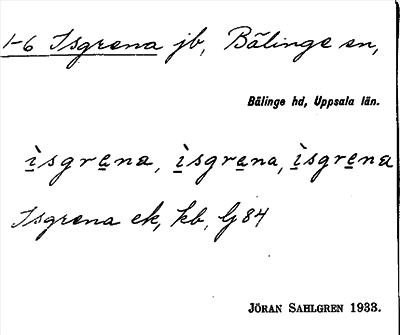 1-6 Isgrena jb, Bälinge sn,
Bälinge hd, Uppsala län.
ìsgrena, ìsgrena, ìsgrena
Isgrena ek, kb, lj 84
JÖRAN SAHLGREN 1933.